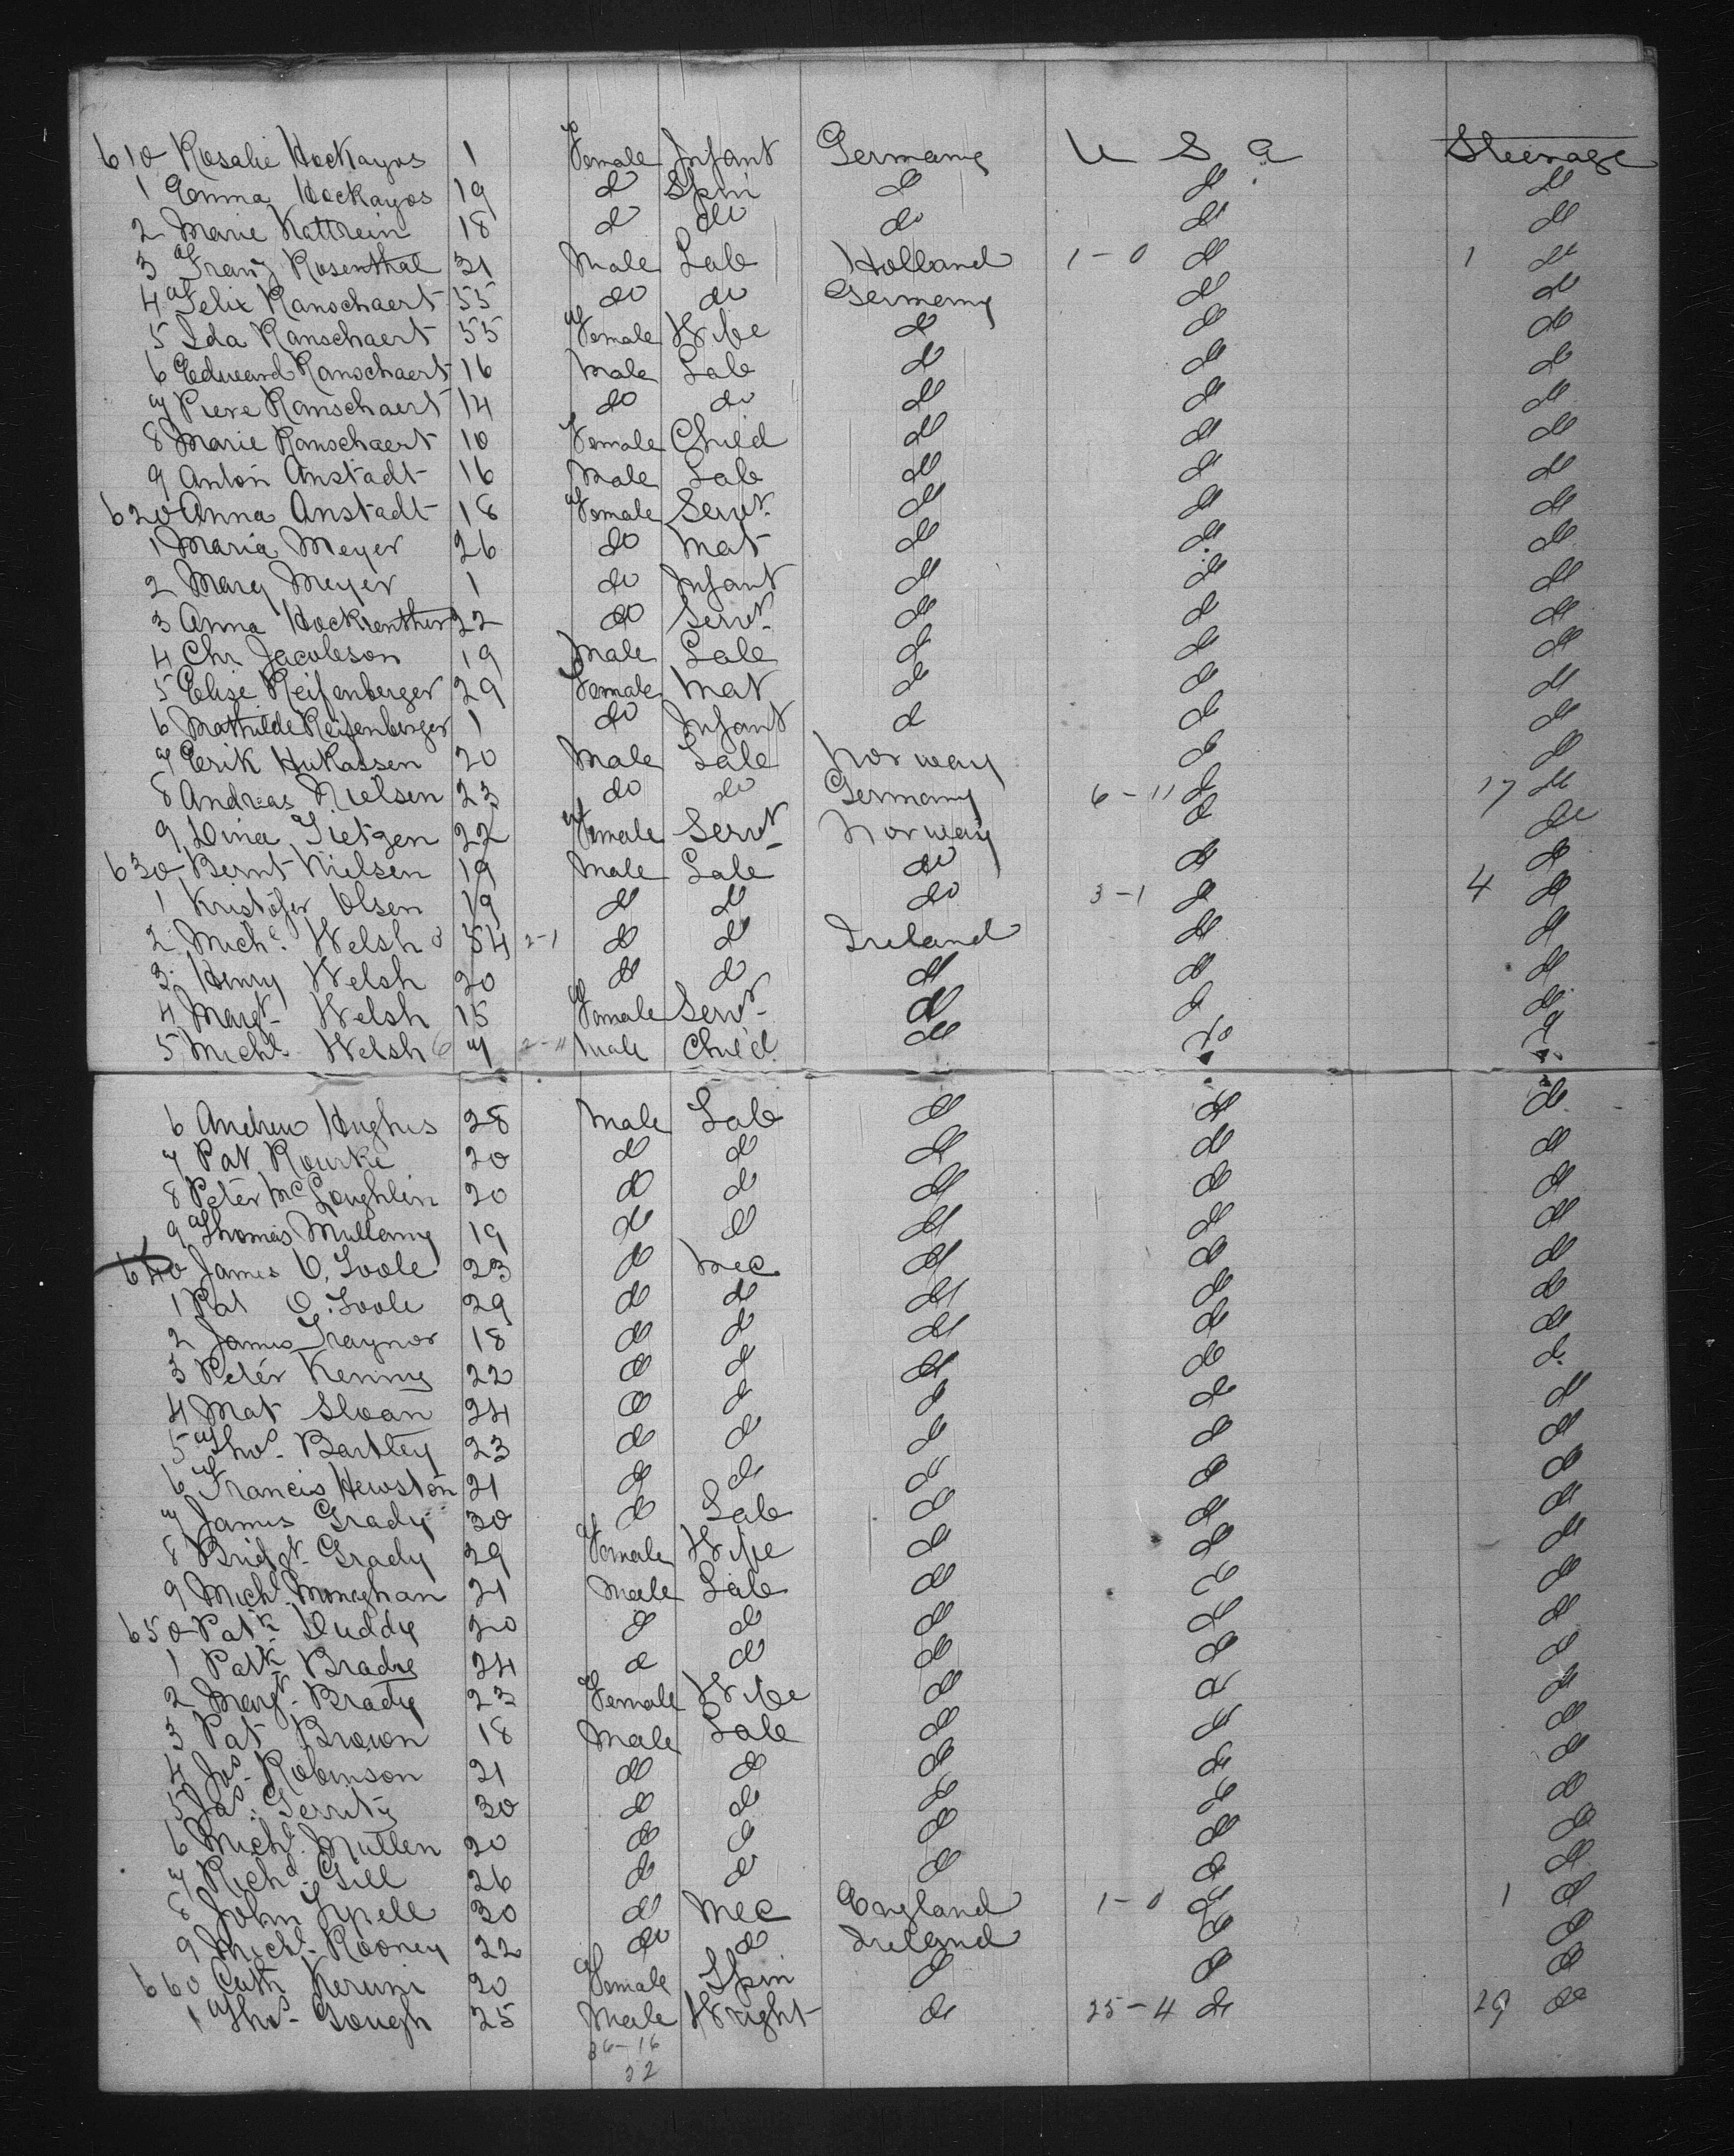 610 Rosalie Hockayos 1 Female Infant Germany U S a Steerage
1 Emma Hockayos 19 do Spin do do do
2 Marie Kattrein 18 do do do do do
3 Franz Rosenthal 31 Male Lab Holland 1-0 do 1 do
4 Felix Ranschaert 55 do do Germany do do
5 Ida Ranschaert 55 Female Wife do do do
6 Edward Ranschaert 16 Male Lab do do do
7 Piere Ranschaert 14 do do do do do
8 Marie Ranschaert 10 Female Child do do do
9 Anton Anstadt 16 Male Lab do do do
620 Anna Anstadt 18 Female Servt do do do
1 Maria Meyer 26 do Mat do do do
2 Marg Meyer 1 do Infant do do do
3 Anna 22 do Servt do do do
4 Chr Jacobson 19 Male Lab do do do
5 Elise Reifenberger 29 Female Mat do do do
6 Mathilde Reifenberger 1 do Infant do do do
7 Erik Hukassen 20 Male Lab Norway do do
8 Andreas Nielsen 23 do do Germany 6-11 do 17 do
9 Dina Tietgen 22 Female Servt Norway do do
630 Bernt Nielsen 19 Male Lab do do do
1 Kristofer Olsen 19 do do do 3-1 do 4 do
2 Michl Welsh 54 2-1 do do Ireland do do
3 Henry Welsh 20 do do do do do
4 Margt Welsh 15 Female Servt do do do
5 Michl Welsh 7 2-11 Male Child do do do
6 Andrew Hughes 28 Male Lab do do do
7 Pat Rourke 20 do do do do do
8 Peter McLoughlin 20 do do do do do
9 Thomas Mullany 19 do do do do do
640 James O. Toole 23 do Mec do do do
1 Pat O. Toole 29 do do do do do
2 James Traynor 18 do do do do do
3 Peter Kenny 22 do do do do do
4 Mat Sloan 24 do do do do do
5 Thos Bartley 23 do do do do do
6 Francis Hewston 21 do do do do do
7 James Grady 30 do Lab do do do
8 Bridgt Grady 29 Female Wife do do do
9 Michl Monaghan 21 Male Lab do do do
650 Patk Duddy 20 do do do do do
1 Patk Brady 24 do do do do do
2 Margt Brady 23 Female Wife do do do
3 Pat Brown 18 Male Lab do do do
4 Jos Robinson 21 do do do do do
5 Jas Gerrity 30 do do do do do
6 Michl Mullen 20 do do do do do
7 Richd Gill 26 do do do do do
8 John 30 do Mec England 1-0 do 1 do
9 Michl Rooney 22 do do Ireland do do
660 Cath 20 Female Spin do do do
1 Thos Gough 25 Male Wright do 25-4 do 29 do
36-16